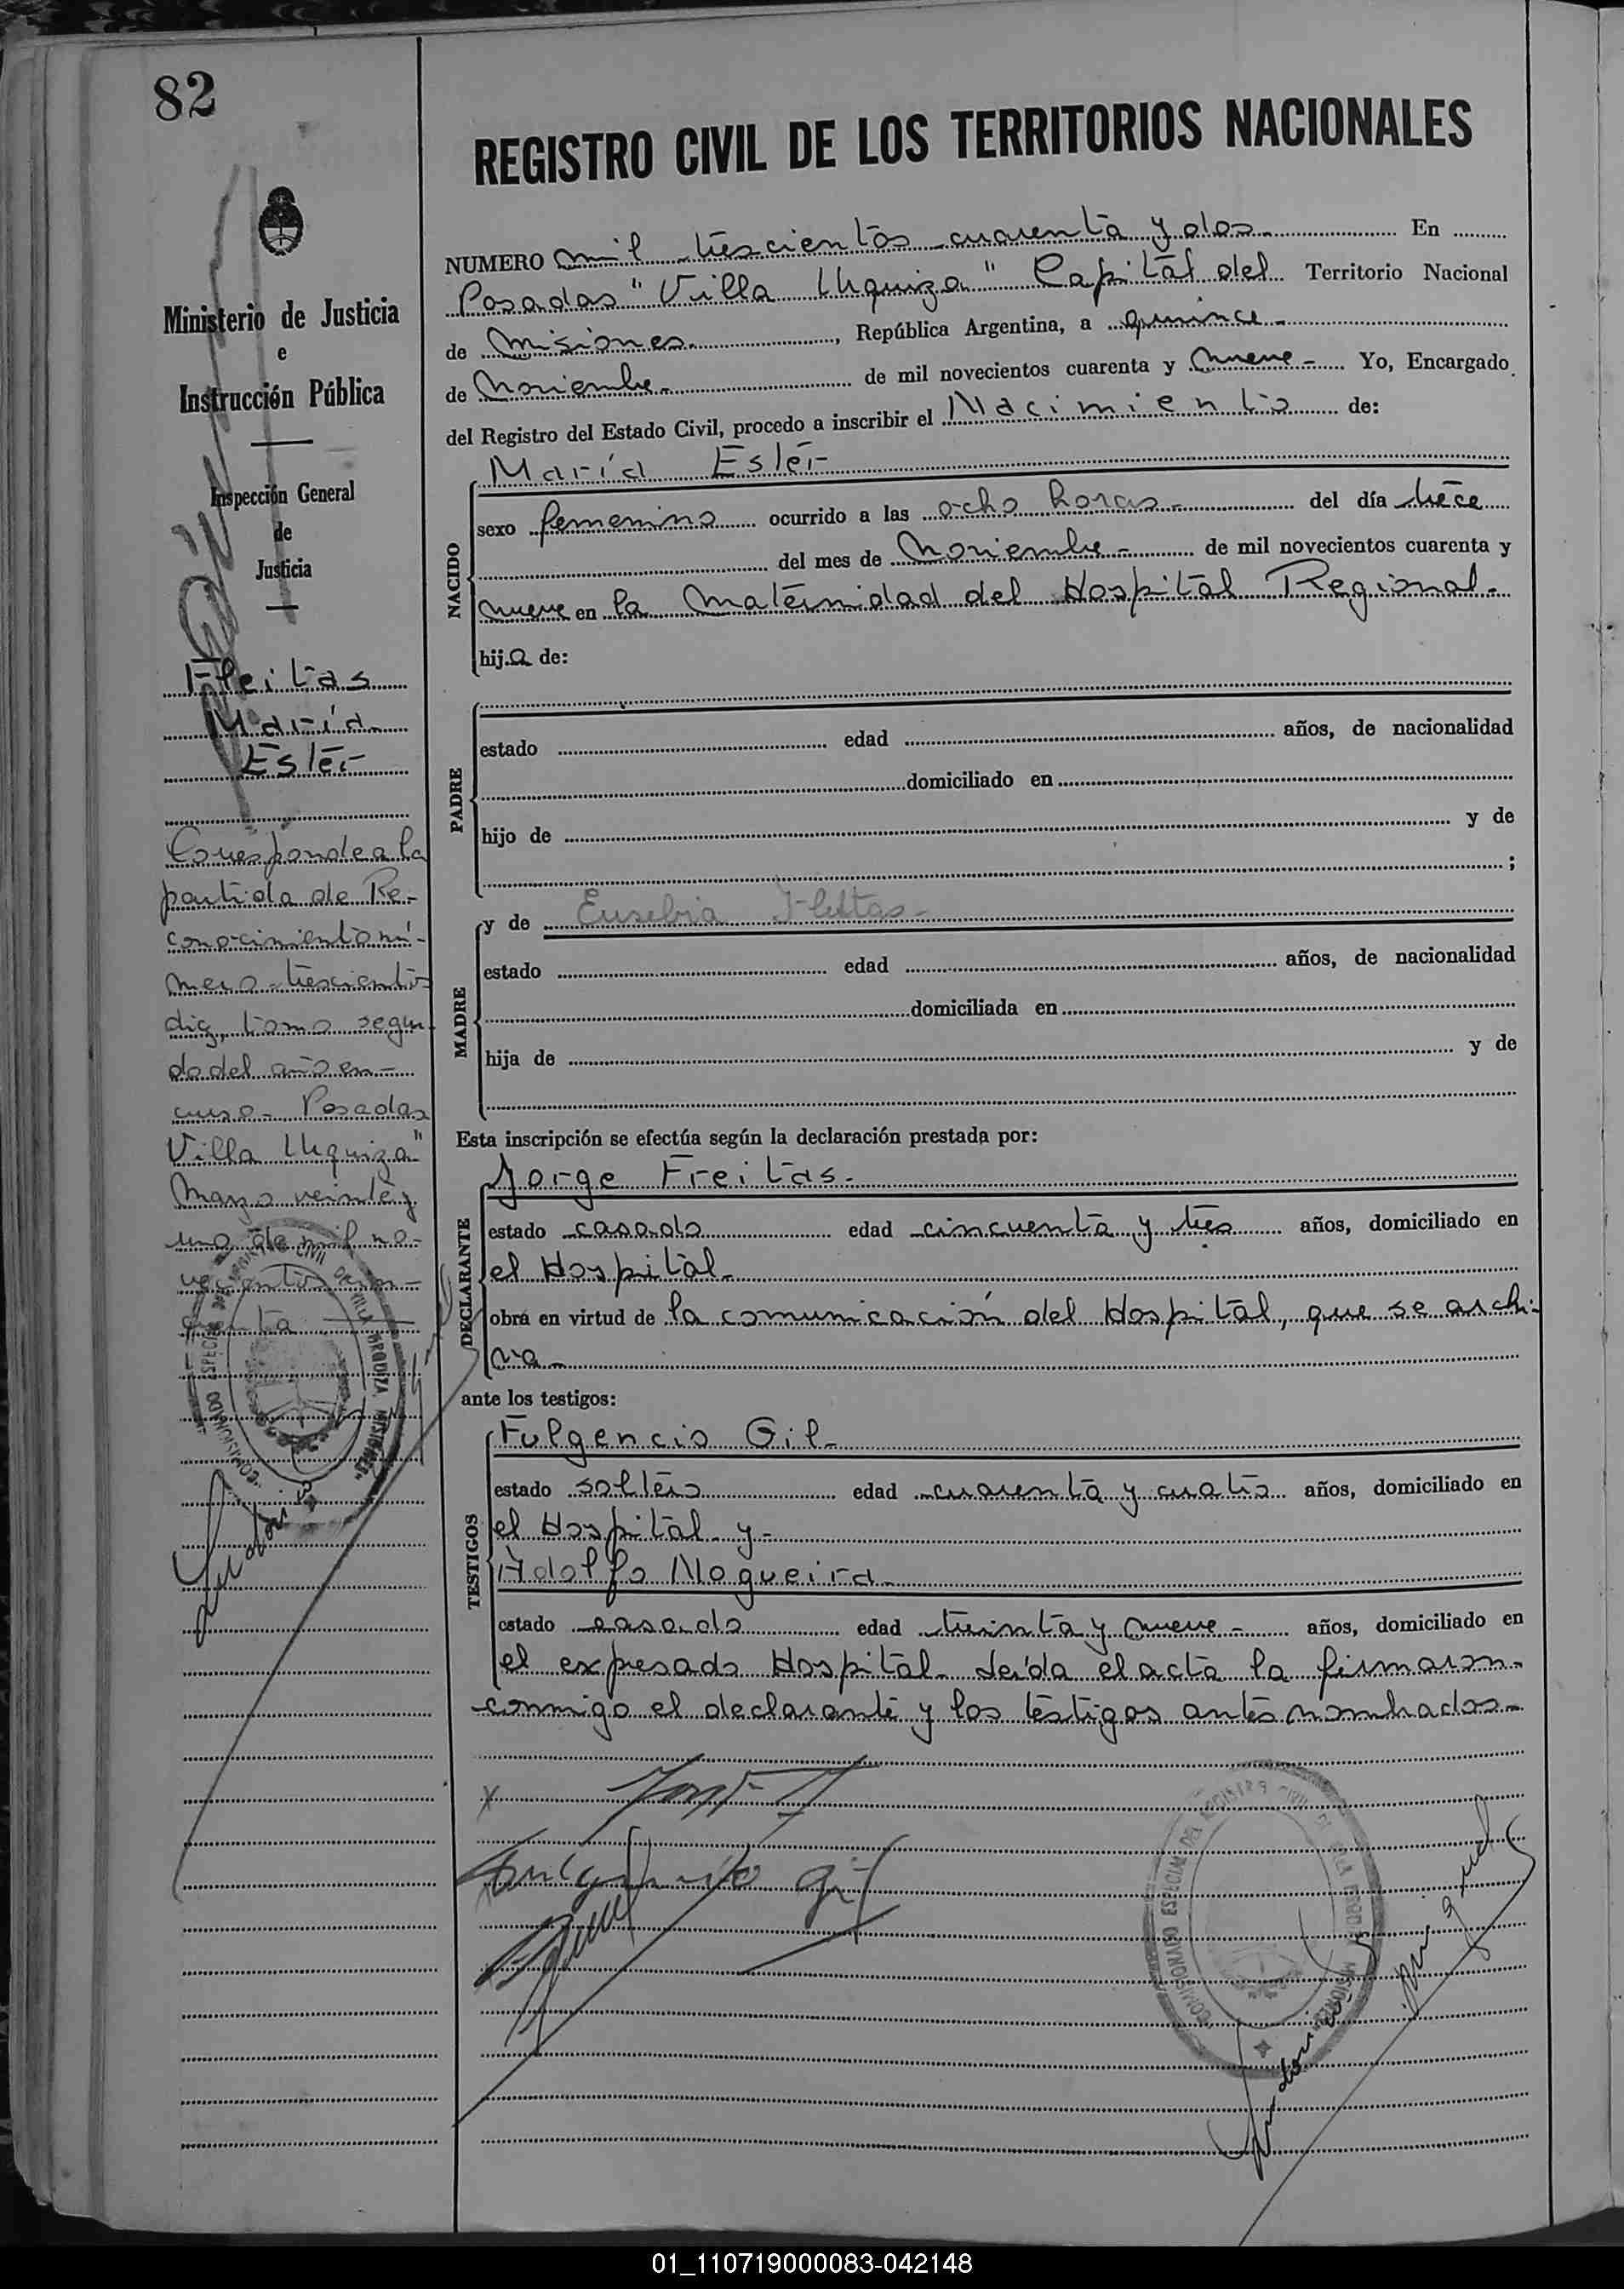 82
REGISTRO CIVIL DE LOS TERRITORIOS NACIONALES
Ministerio de Justicia
e
Instrucción Pública
Inspección General
de
Justicia
Fleitas
María
Ester
Corresponde a la
partida de Re-
conocimiento nú-
mero trescientos
diez, tomo segun-
do del año en
curso - Posadas
Villa Urquiza"
Marzo veinte y
uno de mil no-
vecientos cin-
cuenta
NUMERO mil trescientos cuarenta y dos En
Posadas "Villa Urquiza" Capital del Territorio Nacional
de Misiones, República Argentina, a quince
de Noviembre de mil novecientos cuarenta y nueve Yo, Encargado
del Registro del Estado Civil, procedo a inscribir el Nacimiento de:
María Ester
NACIDO
sexo femenino ocurrido a las ocho horas del día trece
del mes de Noviembre de mil novecientos cuarenta y
nueve en la Maternidad del Hospital Regional.
hija de:
PADRE
estado edad años, de nacionalidad
domiciliado en
hijo de y de
;
MADRE
y de Eusebia Fleitas
estado edad años, de nacionalidad
domiciliada en
hija de y de
Esta inscripción se efectúa según la declaración prestada por:
DECLARANTE
Jorge Freitas.
estado casado edad cincuenta y tres años, domiciliado en
el Hospital
obra en virtud de la comunicación del Hospital, que se archi-
va
ante los testigos:
TESTIGOS
Fulgencio Gil
estado soltero edad cuarenta y cuatro años, domiciliado en
el Hospital y
Adolfo Nogueira
estado casado edad treinta y nueve años, domiciliado en
el expresado Hospital. Leída el acta la firmaron
conmigo el declarante y los testigos antes nombrados
Fulgencio Gil
COMISIONADO ESPECIAL DEL REGISTRO CIVIL DE VILLA URQUIZA MISIONES
01_110719000083-042148